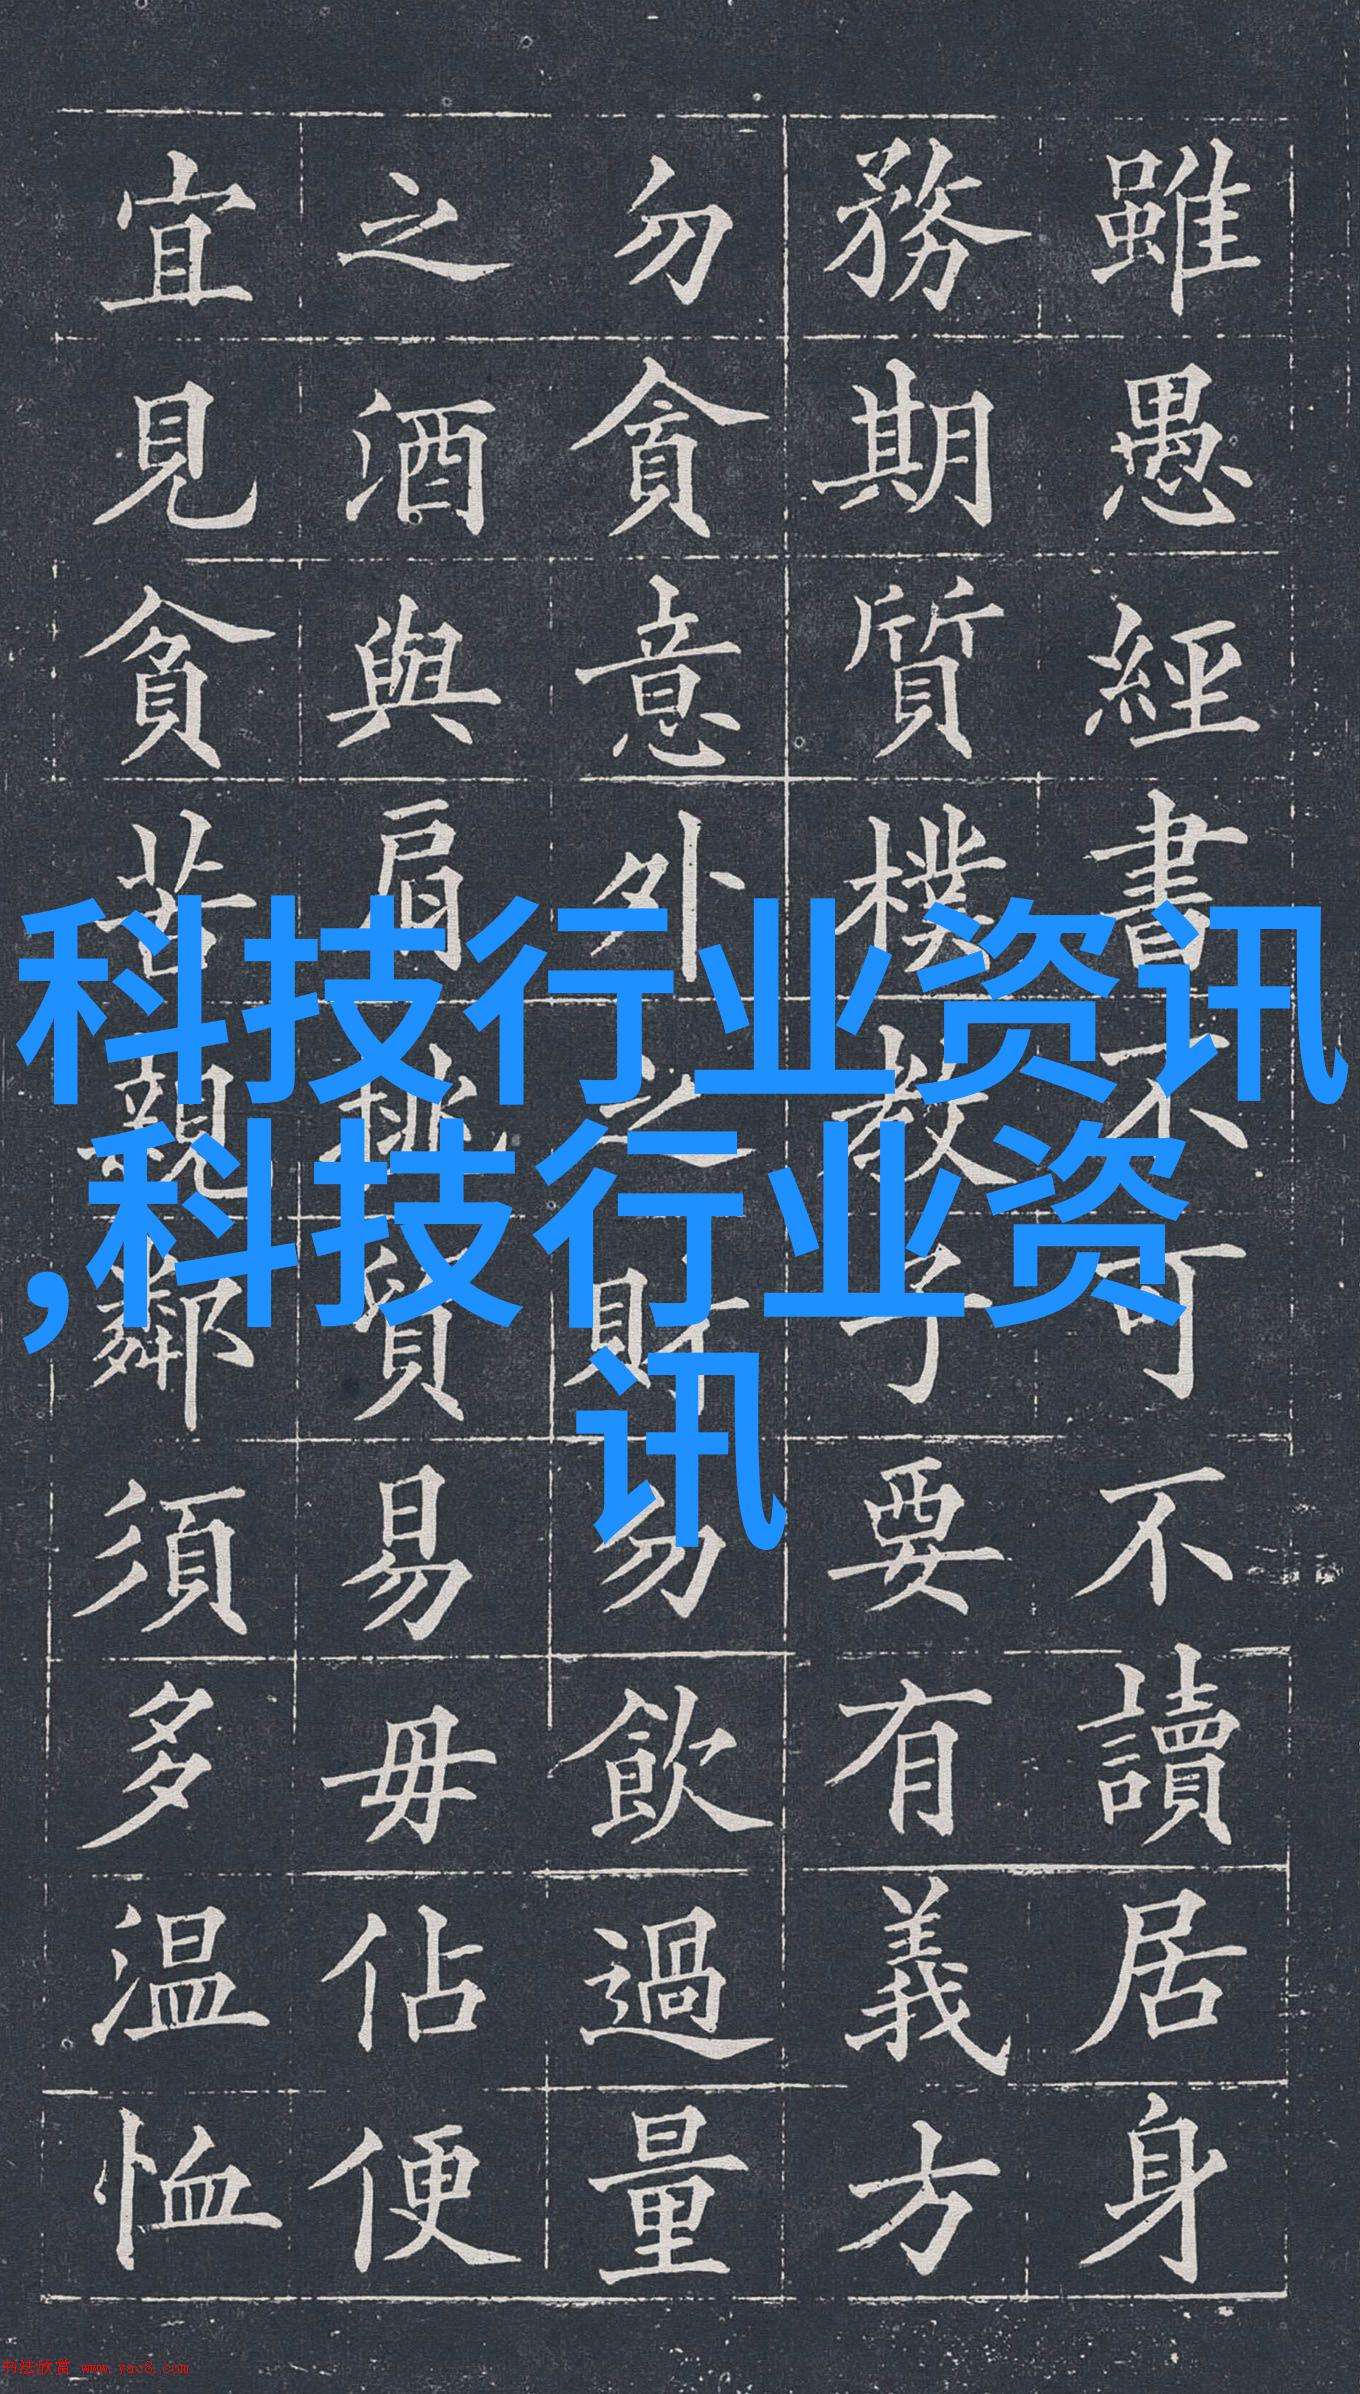 雖愚經書不可不讀居身
務期質樸教子要有義方
勿貪意外之財勿飲過量
之酒與肩挑貿易毋佔便
宜見貧苦親鄰須多温恤
科技行业资讯
,科技行业资
讯
书法欣赏 www.yac8.com